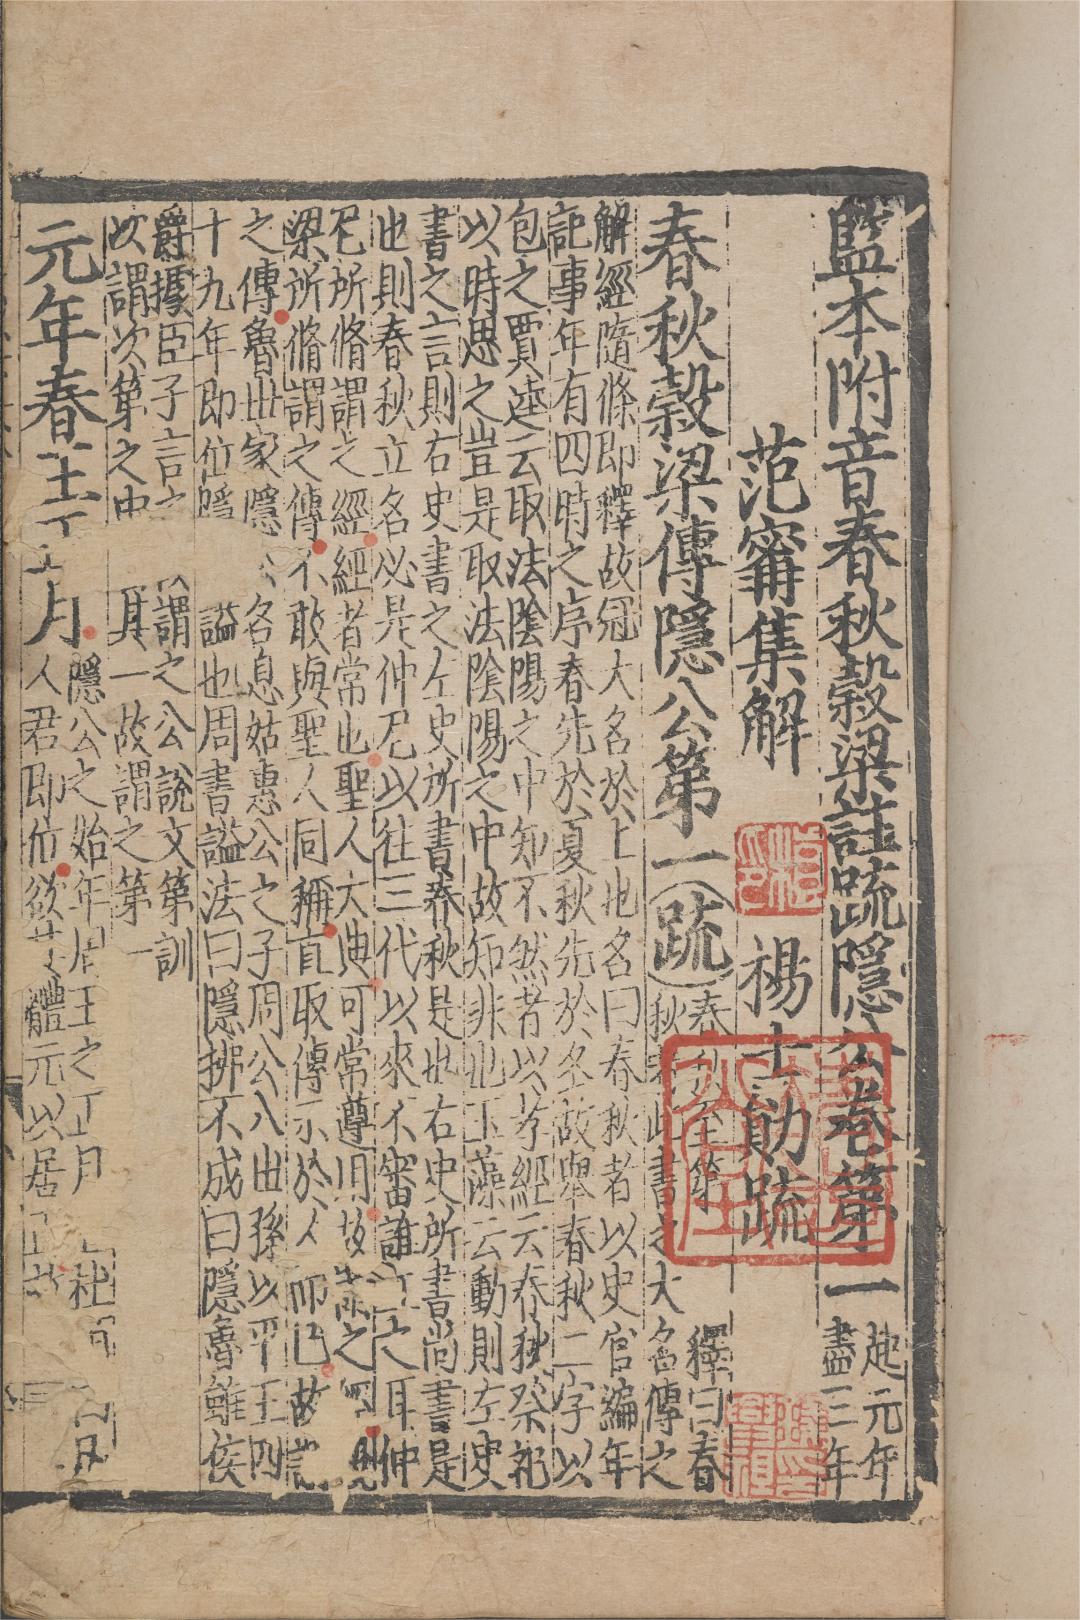 監本附音春秋穀梁註疏隱公卷第一
起元年
盡三年
范甯集解
楊士勛疏
春秋穀梁傳隱公第一
疏
春秋至第
釋曰春
秋此書之大名傳之
解經隨條即釋故冠大名於上也名曰春秋者以史官編年
記事年有四時之序春先於夏秋先於冬故舉春秋二字以
包之賈逵云取法陰陽之中知不然者以孝經云春秋祭祀
以時思之豈是取法陰陽之中故知非也玉藻云動則左史
書之言則右史書之左史所書春秋是也右史所書尚書是
也則春秋立名必是仲尼以往三代以來不審誰立之耳仲
尼所脩謂之經經者常也聖人大典可常遵用故謂之經
梁所脩謂之傳不敢與聖人同稱直取傳示於人而已故
之傳魯世家隱公名息姑惠公之子周公八世孫以平王四
十九年即位隱謚也周書謚法曰隱拂不成曰隱魯雖侯
爵據臣子言之謂之公說文第訓
次謂次第之中其一故謂之第一
元年春王正月
隱公之始年周王之正月
杜
人君即位欲其體元以居正